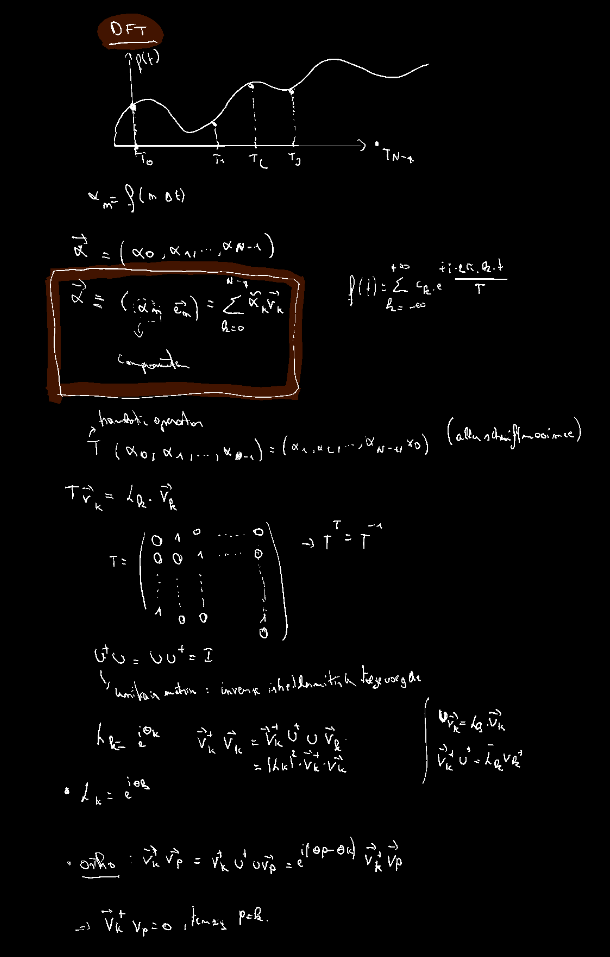 DFT
f(t)
T₀ T₁ T₂ T₃ T_{N-1}
α_m = f(m Δt)
α⃗ = (α₀, α₁, ..., α_{N-1})
α⃗ = (α_m e⃗_m) = Σ_{k=0}^{N-1} α̃_k v⃗_k
f(t) = Σ_{k=-∞}^{+∞} c_k . e^{+i·2π·k·t / T}
componenten
operator
T (α₀, α₁, ..., α_{N-1}) = (α₁, α₂, ..., α_{N-1}, α₀)
T v⃗_k = λ_k . v⃗_k
T = ( 0 1 0 ...... 0
0 0 1 ...... 0
1 0 0 1
0 ) → T^T = T^{-1}
U⁺U = UU⁺ = I
unitair matrix : inverse is hermitisch toegevoegde
λ_k = e^{iθ_k} v⃗_k⁺ v⃗_k = v⃗_k⁺ U⁺ U v⃗_k
= |λ_k|² . v⃗_k⁺ . v⃗_k
U v⃗_k = λ_k . v⃗_k
v⃗_k⁺ U⁺ = λ̄_k v_k⁺
• λ_k = e^{iθ_k}
• ortho : v⃗_k⁺ v⃗_p = v⃗_k⁺ U⁺ U v⃗_p = e^{i(θp - θk)} v⃗_k⁺ v⃗_p
⇒ v⃗_k⁺ v_p = 0 , tenzij p = k.